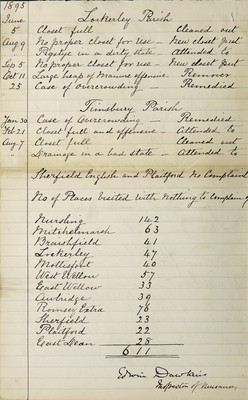 1895 Lockerley Parish
June 5 Closet full Cleaned out
Aug 9 No proper closet for use - New closet put
" Pigstye in a dirty state - Attended to
Sep 5 No proper closet for use - New closet put
Oct 11 Large heap of manure offensive - Remover
25 Case of overcrowding - Remedied
Timsbury Parish
Jan 30 Case of Overcrowding - Remedied
Feb 21 Closet full and offensive - Attended to
Aug 7 Closet full - Cleaned out
" Drainage in a bad state - Attended to
Sherfield English and Plaitford No Complaint
No of Places Visited with Nothing to Complain of
Nursling 142
Mitchelmarsh 63
Braishfield 41
Lockerley 47
Mottisfont 40
West Wellow 57
East Wellow 33
Awbridge 39
Romsey Extra 76
Sherfield 23
Plaitford 22
East Dean 28
611
Edwin Dawkins
Inspector of Nuisances